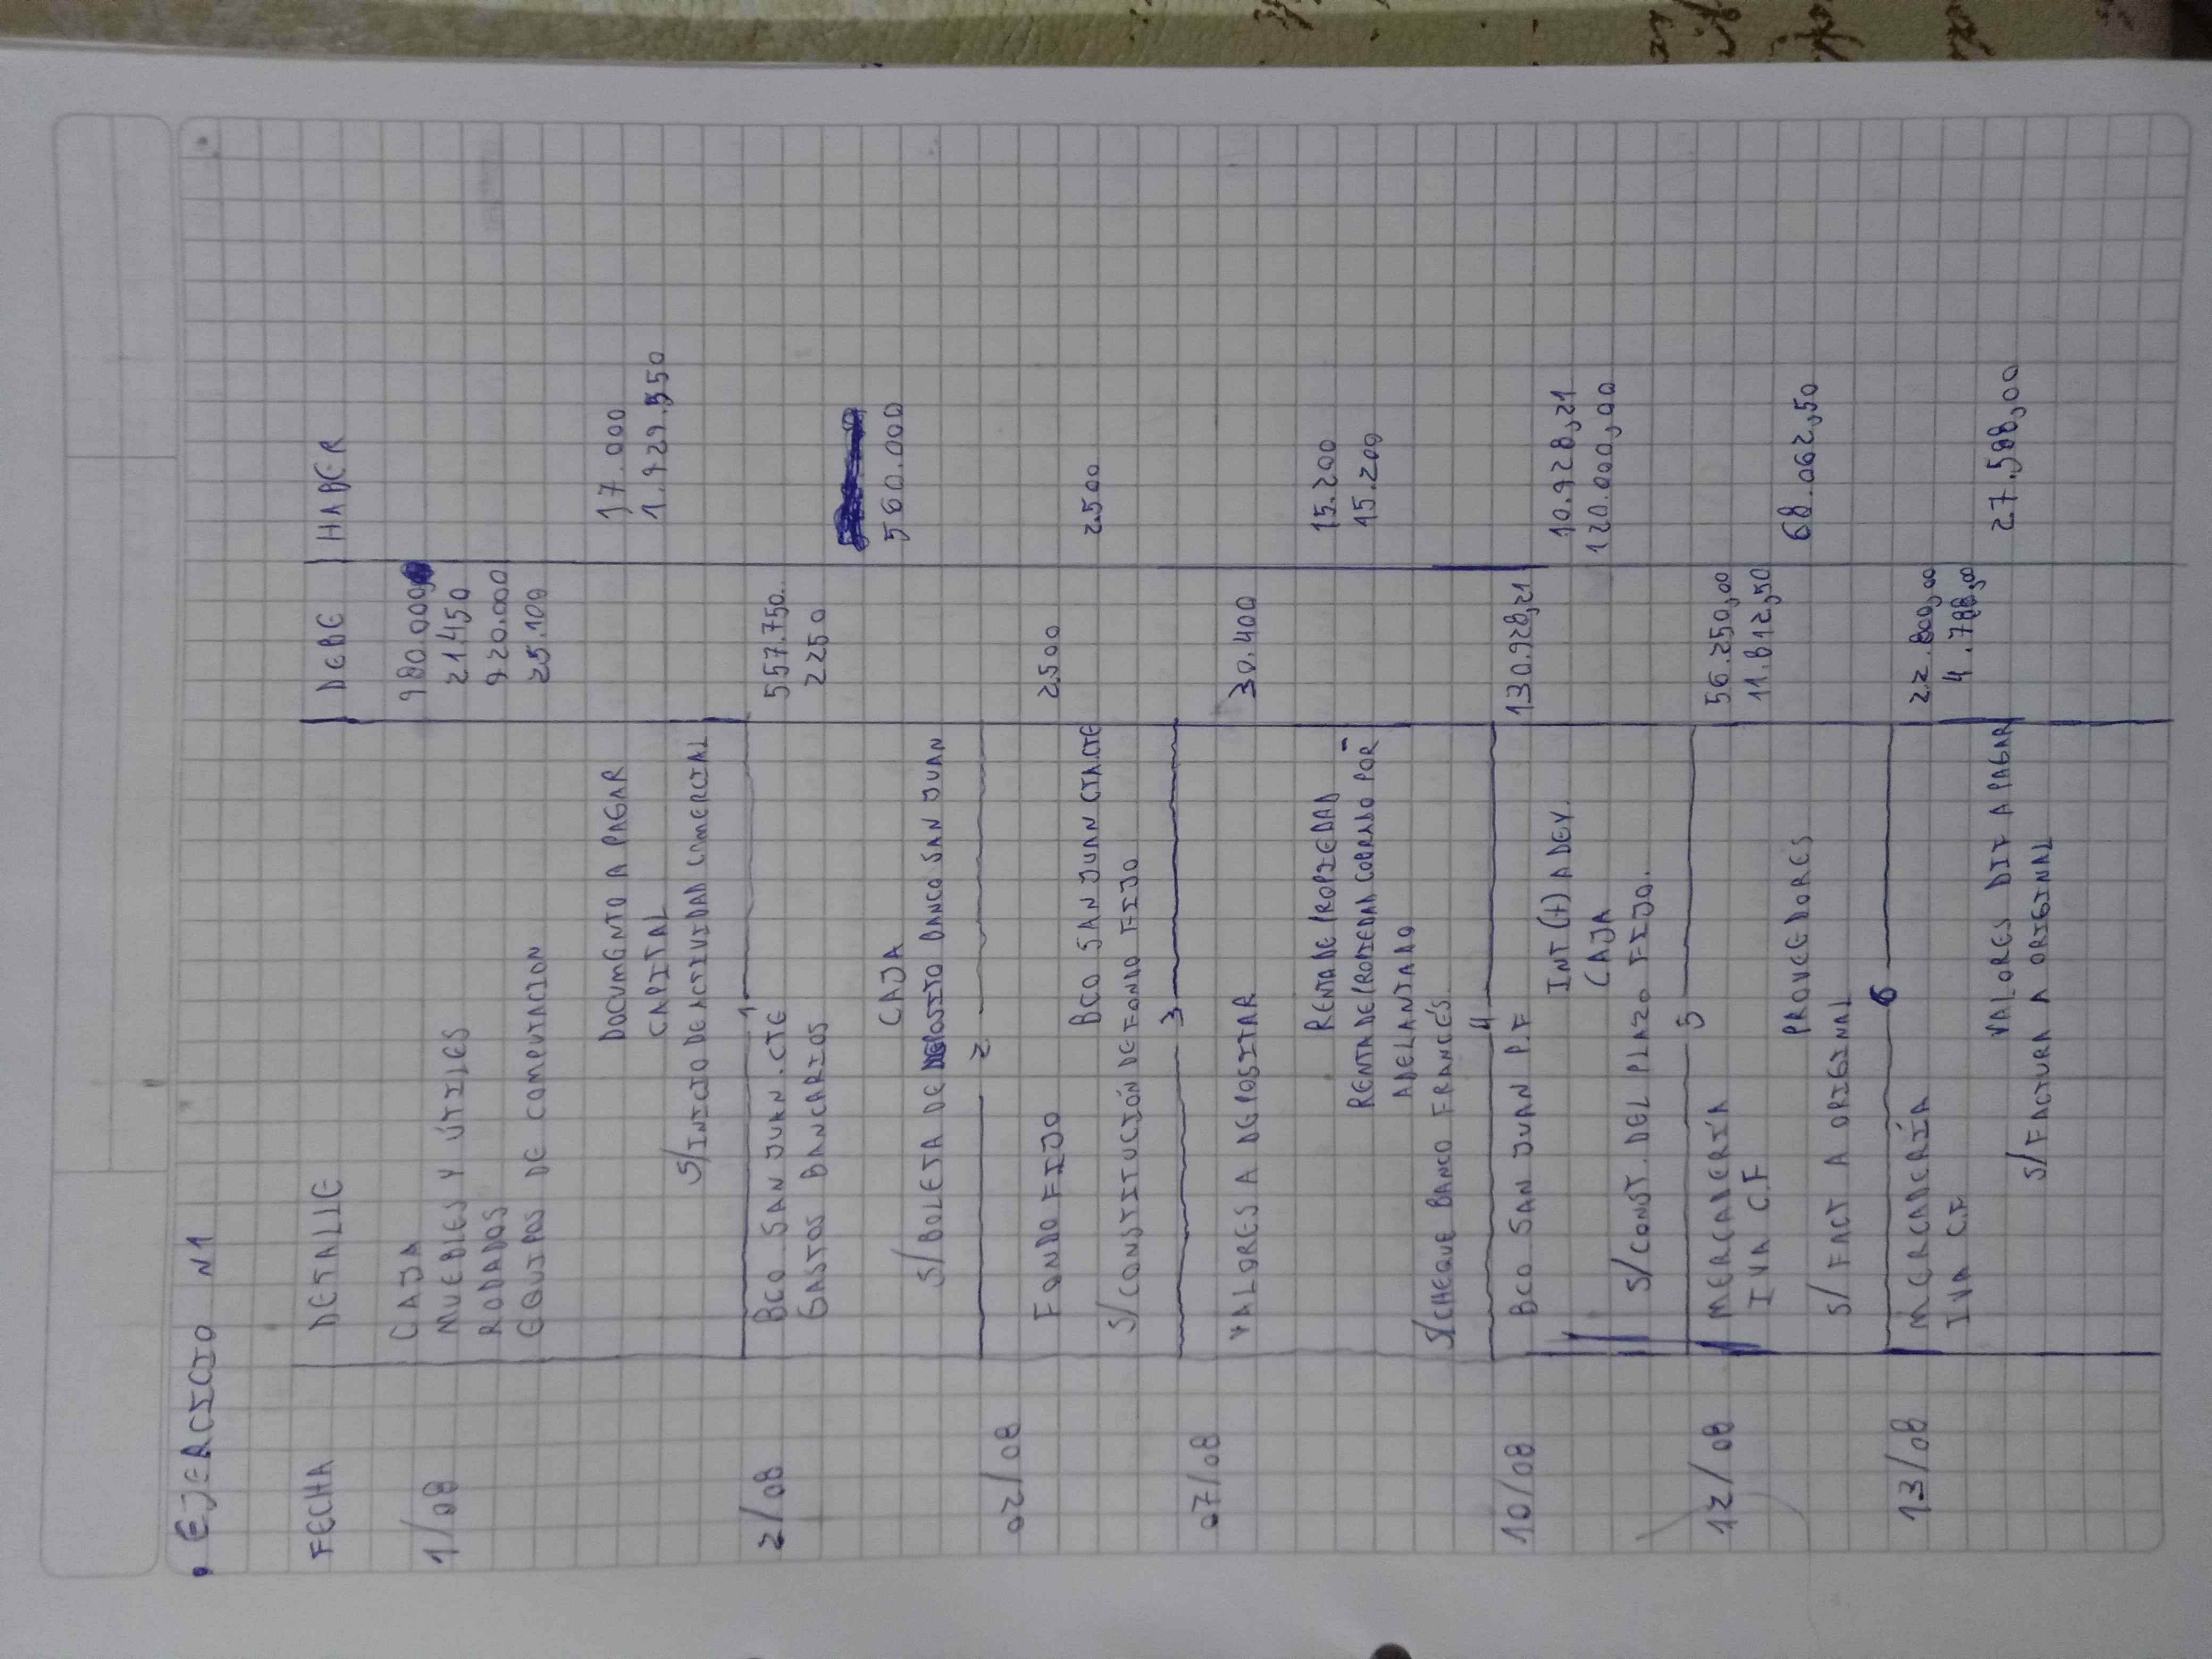 • EJERCICIO N1
FECHA DETALLE DEBE HABER
1/08 CAJA 980.000
MUEBLES Y ÚTILES 21.450
RODADOS 920.000
EQUIPOS DE COMPUTACION 25.100
DOCUMENTO A PAGAR 17.000
CAPITAL 1.929.550
S/INICIO DE ACTIVIDAD COMERCIAL
1
2/08 BCO. SAN JUAN. CTE 557.750
GASTOS BANCARIOS 2250
CAJA 560.000
S/BOLETA DE DEPOSITO BANCO SAN JUAN
2
02/08 FONDO FIJO 2.500
BCO SAN JUAN CTACTE 2.500
S/CONSTITUCIÓN DE FONDO FIJO
3
07/08 VALORES A DEPOSITAR 30.400
RENTA DE PROPIEDAD 15.200
RENTA DE PROPIEDAD COBRADO POR 15.200
ADELANTADO
S/CHEQUE BANCO FRANCÉS.
4
10/08 BCO SAN JUAN P.F 130.928,21
INT (+) A DEV. 10.928,21
CAJA 120.000,00
S/CONST. DEL PLAZO FIJO.
5
12/08 MERCADERÍA 56.250,00
IVA C.F 11.812,50
PROVEEDORES 68.062,50
S/ FACT A ORIGINAL
6
13/08 MERCADERÍA 22.800,00
IVA C.F 4.788,00
VALORES DIF A PAGAR 27.588,00
S/FACTURA A ORIGINAL